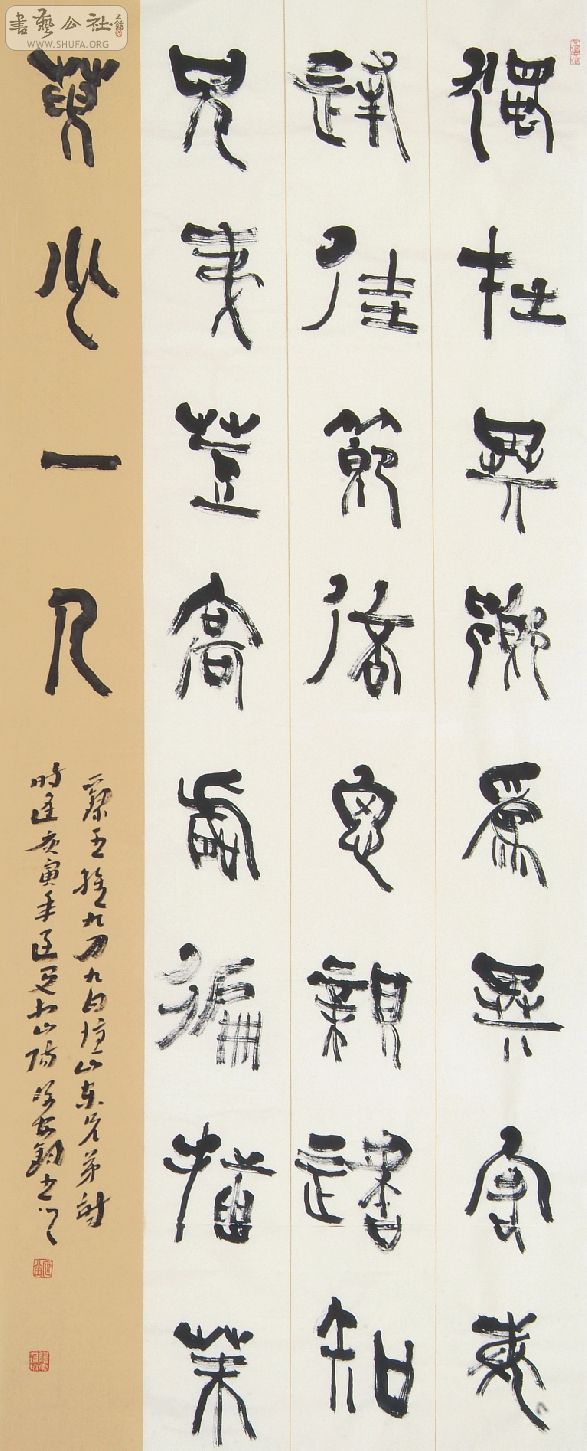 獨在異鄉為異客每
逢佳節倍思親遙知
兄弟登高處遍插茱
萸少一人
王維九月九日憶山東兄弟詩
時逢庚寅年
書藝公社
WWW.SHUFA.ORG